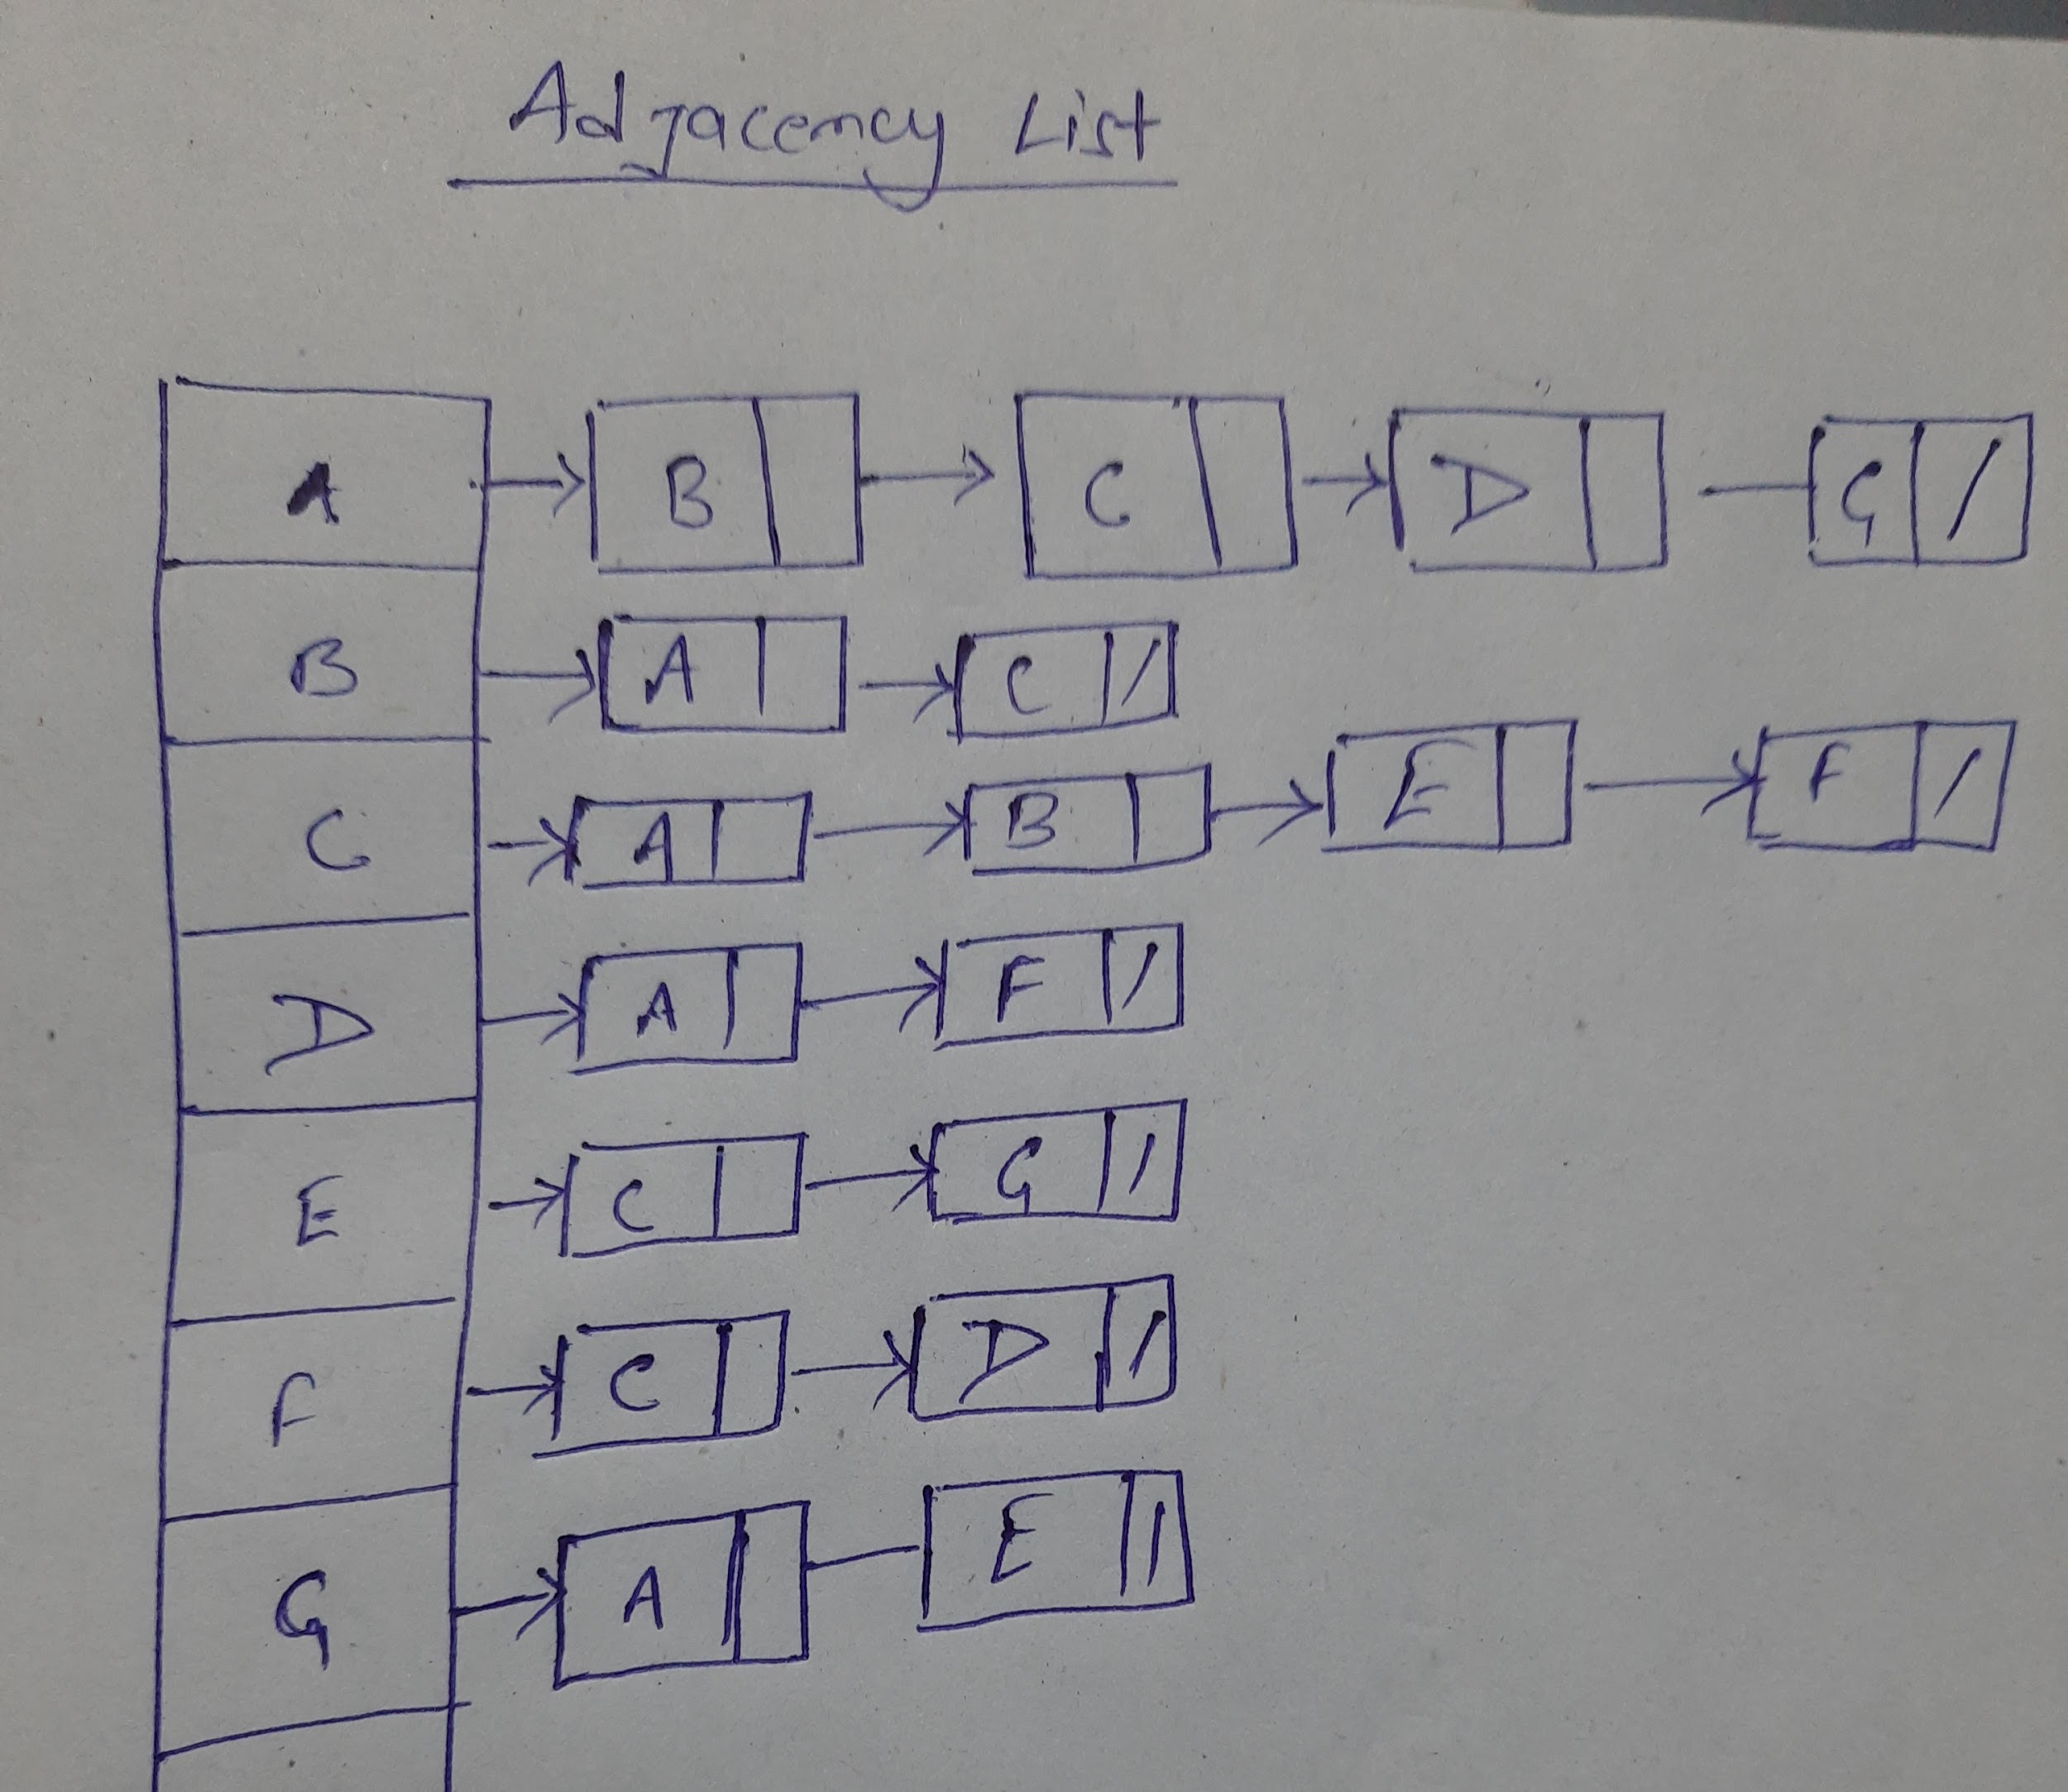 Adjacency List
A B C D G /
B A C /
C A B E F /
D A F /
E C G /
F C D /
G A E /